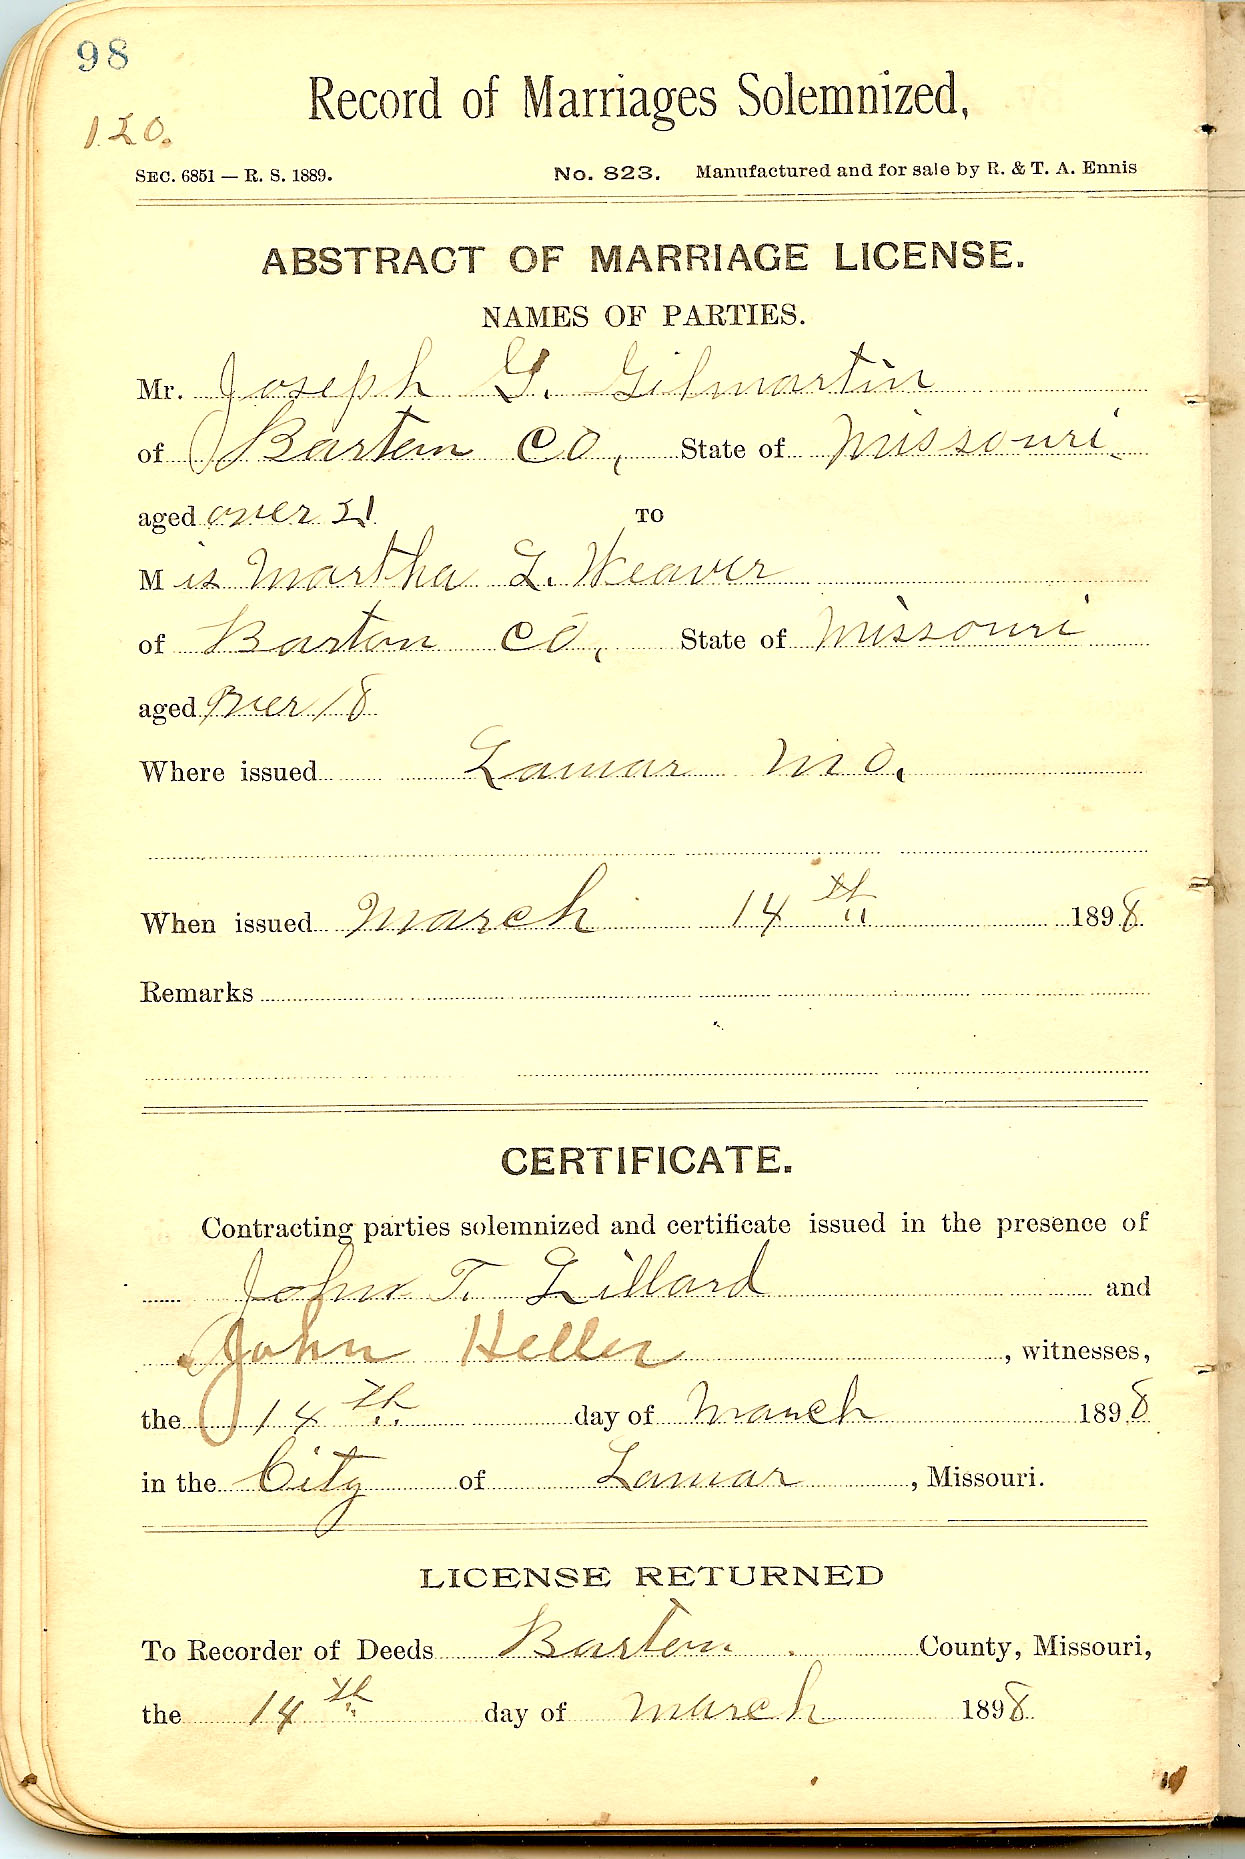 98
120.
Record of Marriages Solemnized,
SEC. 6851 — R. S. 1889. No. 823. Manufactured and for sale by R. & T. A. Ennis
ABSTRACT OF MARRIAGE LICENSE.
NAMES OF PARTIES.
Mr. Joseph G. Gilmartin
of Barton CO, State of Missouri
aged over 21 TO
M is Martha L. Weaver
of Barton CO, State of Missouri
aged over 18
Where issued Lamar MO.
When issued March 14th 1898
Remarks
CERTIFICATE.
Contracting parties solemnized and certificate issued in the presence of
John T. Lillard and
John Heller , witnesses,
the 14th day of March 1898
in the City of Lamar , Missouri.
LICENSE RETURNED
To Recorder of Deeds Barton County, Missouri,
the 14th day of March 1898